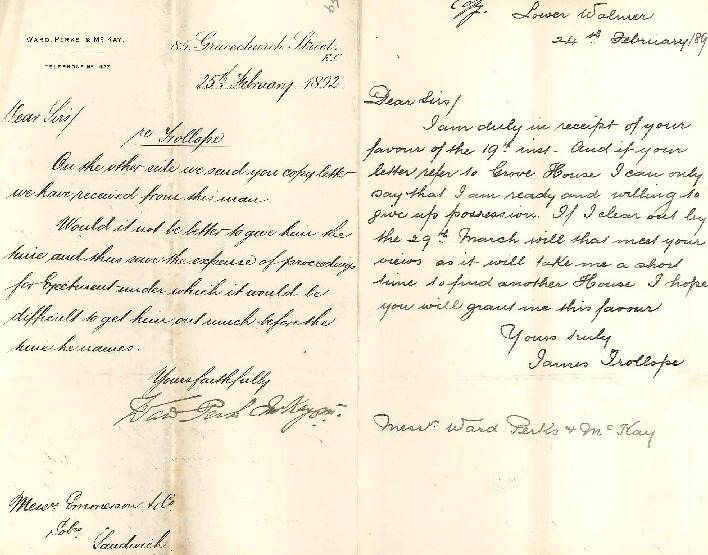 WARD, PERKS & McKAY.
TELEPHONE No
85, Gracechurch Street,
E.C.
25th February 1892
Dear Sirs/
re Trollope
On the other side we send you copy letter
we have received from this man.
Would it not be better to give him the
time and thus save the expense of proceedings
for Ejectment under which it would be
difficult to get him out much before the
time he names.
Yours faithfully
Ward Perks & McKay
Messrs Emmerson & Co
Solrs
Sandwich.
Copy.
Lower Walmer
24th February/189
Dear Sirs/
I am duly in receipt of your
favour of the 19th inst. And if your
letter refer to Grove House I can only
say that I am ready and willing to
give up possession. If I clear out by
the 29th March will that meet your
views as it will take me a short
time to find another House I hope
you will grant me this favour
Yours truly
James Trollope
Messrs Ward Perks & McKay